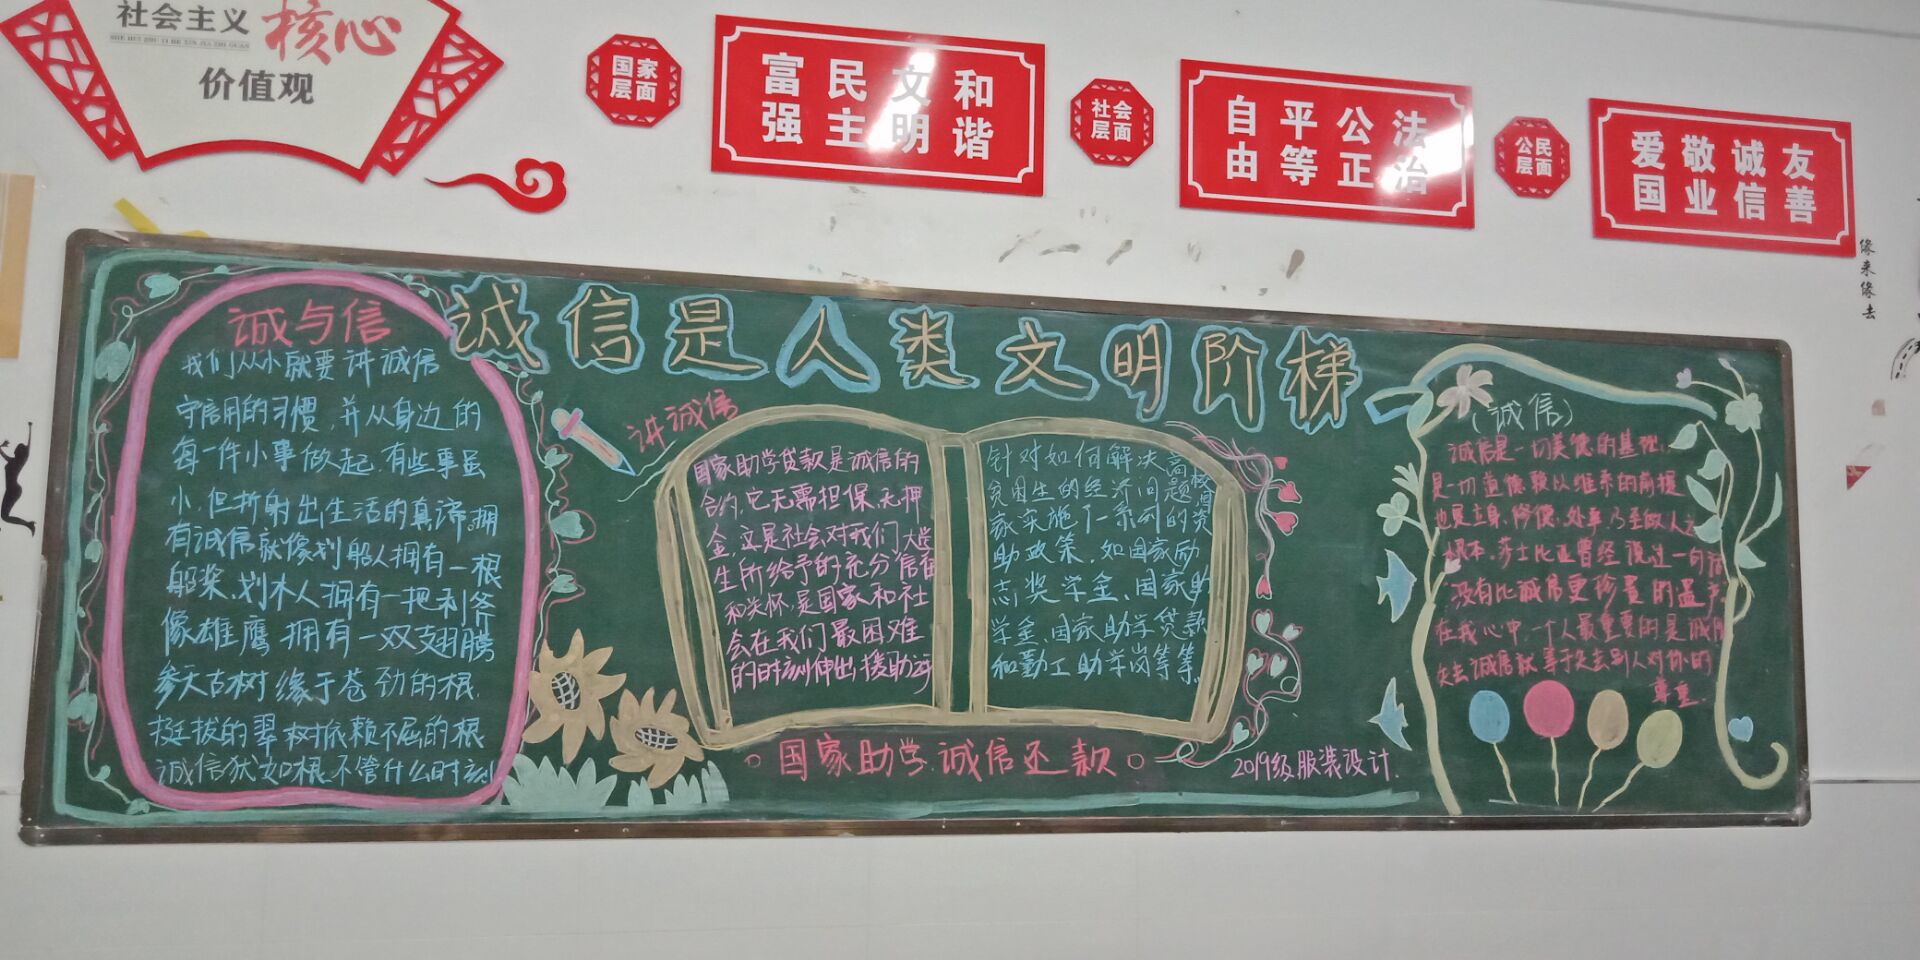 社会主义核心
SHE HUI ZHU YI HE XIN JIA ZHI GUAN
价值观
国家
层面
富民文和
强主明谐
社会
层面
自平公法
由等正治
公民
层面
爱敬诚友
国业信善
缘来缘去
诚信是人类文明阶梯
诚与信
我们从小就要讲诚信
守信用的习惯,并从身边的
每一件小事做起.有些事虽
小,但折射出生活的真谛.拥
有诚信就像划船人拥有一根
船桨.划木人拥有一把利斧
像雄鹰拥有一双翅腾
参天古树缘于苍劲的根.
挺拔的翠树依赖不屈的根
诚信犹如根.不管什么时刻
讲诚信
国家助学贷款是诚信的
合约,它无需担保.无押
金.这是社会对我们大学
生所给予的充分信任
和关怀,是国家和社
会在我们最困难
的时刻伸出援助之手
针对如何解决高校
贫困生的经济问题国
家实施了一系列的资
助政策,如国家励
志奖学金、国家助
学金、国家助学贷款
和勤工助学岗等等.
国家助学.诚信还款
2019级服装设计.
(诚信)
诚信是一切美德的基础,
是一切道德赖以维系的前提
也是立身、修德、处事乃至做人之
根本.莎士比亚曾经说过一句话
没有比诚信更珍贵的遗产
在我心中,一个人最重要的是诚信
失去诚信就等于失去别人对你的
尊重.